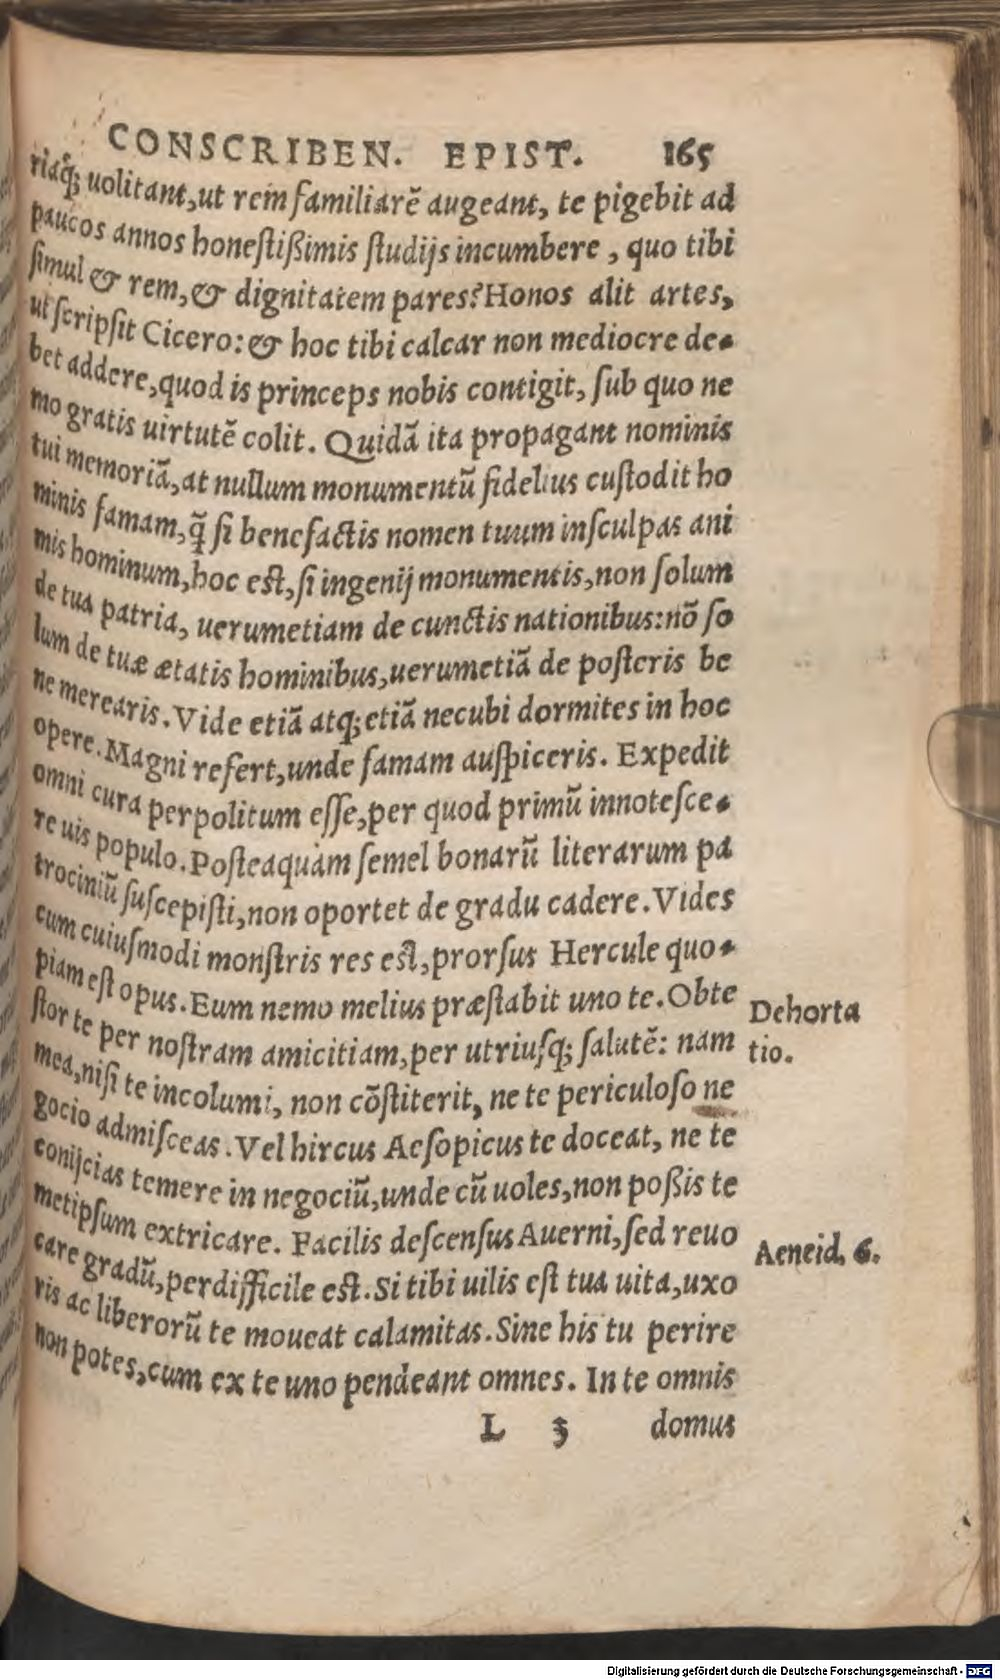 CONSCRIBEN. EPIST. 165
riaq̃; uolitant,ut rem familiarẽ augeant, te pigebit ad
paucos annos honeſtißimis ſtudijs incumbere , quo tibi
ſimul & rem,& dignitatem pares?Honos alit artes,
ut ſcripſit Cicero:& hoc tibi calcar non mediocre de-
bet addere,quod is princeps nobis contigit, ſub quo ne
mo gratis uirtutẽ colit. Quidã ita propagant nominis
tui memoriã,at nullum monumentũ fidelius cuſtodit ho
minis famam,q̃ ſi benefactis nomen tuum inſculpas ani
mis hominum,hoc eſt,ſi ingenij monumentis,non ſolum
de tua patria, uerumetiam de cunctis nationibus:nõ ſo
lum de tuæ ætatis hominibus,uerumetiã de poſteris be
ne merearis.Vide etiã atq;etiã necubi dormites in hoc
opere.Magni refert,unde famam auſpiceris. Expedit
omni cura perpolitum eſſe,per quod primũ innoteſce-
re uis populo.Poſteaquàm ſemel bonarũ literarum pa
trociniũ ſuſcepiſti,non oportet de gradu cadere.Vides
cum cuiuſmodi monſtris res eſt,prorſus Hercule quo-
piam eſt opus.Eum nemo melius præſtabit uno te.Obte
ſtor te per noſtram amicitiam,per utriuſq; ſalutẽ: nam
Dehorta
tio.
mea,niſi te incolumi, non cõſtiterit, ne te periculoſo ne
gocio admiſceas.Vel hircus Aeſopicus te doceat, ne te
conijcias temere in negociũ,unde cũ uoles,non poßis te
metipſum extricare. Facilis deſcenſus Auerni,ſed reuo
Aeneid. 6.
care gradũ,perdifficile eſt.Si tibi uilis eſt tua uita,uxo
ris ac liberorũ te moueat calamitas.Sine his tu perire
non potes,cum ex te uno pendeant omnes. In te omnis
L 3 domus
Digitalisierung gefördert durch die Deutsche Forschungsgemeinschaft - DFG